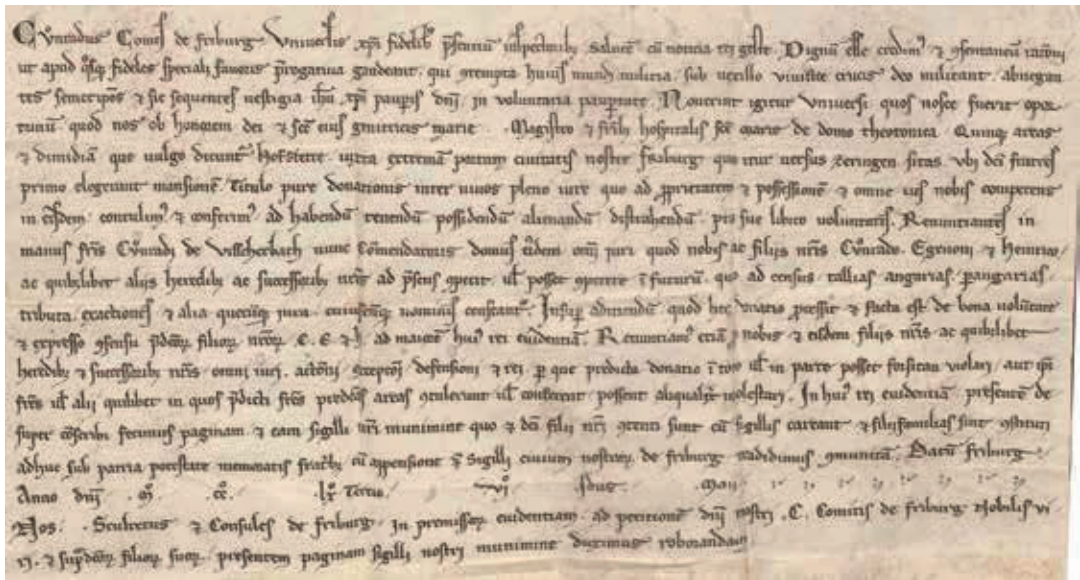 Cv̊nradus Comes de friburg Vniuersis xp̄i fidelibꝫ p̄sentium inspectoribꝫ salutē cū noticia rei geste. Dignum esse credimꝰ ⁊ ꝯsentaneū rationi
ut apud quosꝗ fideles speciali fauoris prerogatiua gaudeant. qui ꝯtempta huius mundi militia. sub uexillo viuifice crucis deo militant. abnegan
tes semetip̄os ⁊ sic sequentes uestigia ih̄u xp̄i pauperis dn̄i. in voluntaria paupertate. Nouerint igitur vniuersi quos nosce fuerit opor
tunū quod nos ob honorem dei ⁊ sc̄e eius genitricis marie. Magistro ⁊ fr̄ibꝫ hospitalis sc̄e marie de domo theotonica. Quinqꝫ areas
⁊ dimidiā que uulgo dicuntᷣ Hofstete. iuxta extremā partem ciuitatis nostre friburg qua itur uersus zeringen sitas. vbi dc̄i fratres
primo elegerant mansionē. Titulo pure donationis inter uiuos pleno iure quo ad ꝓprietatem ⁊ possessionē ⁊ omne ius nobis competens
in eisdem. contulimꝰ ⁊ conferimꝰ ad habendū tenendū possidendū alienandū distrahendū. pro sue libito voluntatis. Renuntiantes in
manus fr̄is Cv̊nradi de Visscherbach nunc Cōmendatoris domus eidem omī iuri quod nobis ac filijs nr̄is Cv̊nrado. Egenoni ⁊ Heinrico
ac quibuslibet alijs heredibꝫ ac successoribꝫ nr̄is ad p̄sens ꝯpetit ul̄ posset ꝯpetere ī futurū. quo ad census tallias angarias. ꝑangarias.
tributa. exactiones ⁊ alia quecūqꝫ iura. cuiuscūqꝫ nominis censeantᷣ. Insuꝑ adiiciendū quod hec donatio ꝓcessit ⁊ facta est de bona volūtate
⁊ expresso ꝯsensu p̄dictoꝝ filioꝝ nr̄oꝝ C. E. ⁊ h̄. ad maiorē huiꝰ rei euidentiā. Renuntiamꝰ etiā ꝓ nobis ⁊ eisdem filijs nr̄is ac quibuslibet
heredibꝫ ⁊ successoribꝫ nr̄is omni iuri. actōni exceptōi defensioni ⁊ rei ꝑ que predicta donatio ī toto ul̄ in parte posset forsitan violari. aut ip̄i
fr̄es ul̄ alij quilibet in quos p̄dicti fr̄es predc̄as areas ꝯtulerint ul̄ conferent possent aliqualiter molestari. In huiꝰ rei euidentiā presentē de
super cōscribi fecimus paginam. ⁊ eam sigilli nr̄i munimine quo ⁊ dc̄i filij nr̄i ꝯtenti sunt cū sigillis careant ⁊ filijfamilias sint ꝯstituti
adhuc sub patria potestate memoratis fratribꝫ cū appensione sigilli ciuium nostroꝝ de friburg tradidimus ꝯmunitā. Datū friburg.
Anno dn̄i .M̊. .CC̊. .Lx̊. Tertio. .vi̊. .Idus. .Maij.
Nos. Scultetus ⁊ Consules de friburg. in premissoꝝ euidentiam. ad petitionē dn̄i nostri .C. Comitis de friburg. Nobilis vi
ri. ⁊ sup̄dc̄oꝝ filioꝝ suoꝝ. presentem paginam sigilli nostri munimine duximus roborandam